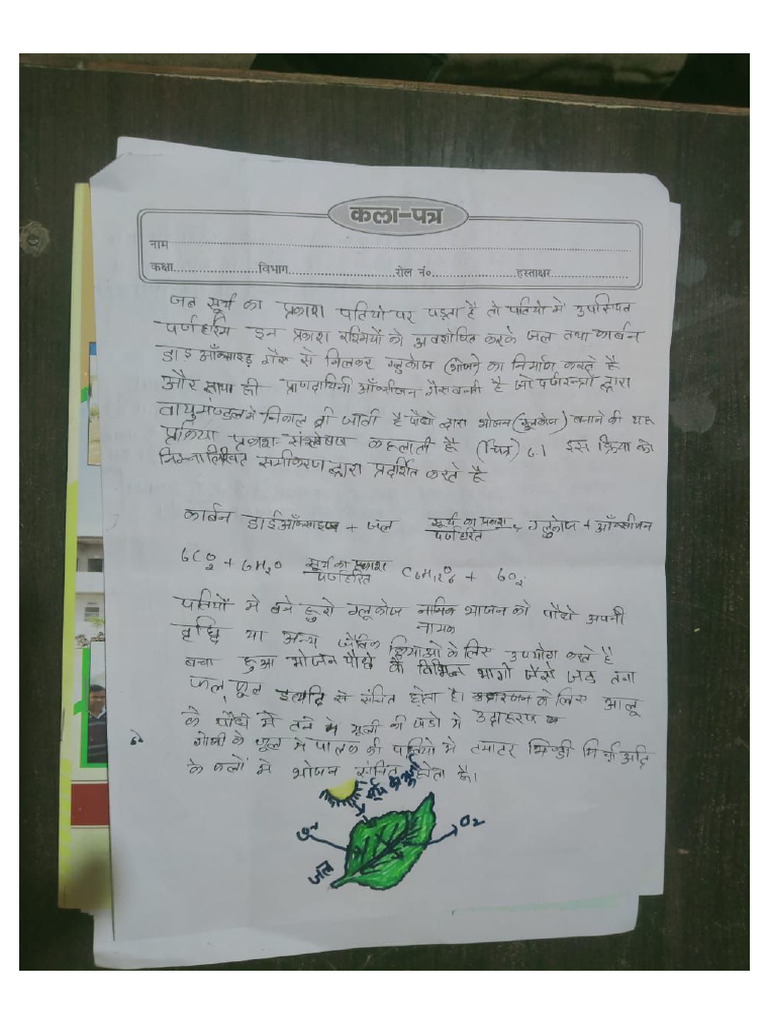 कला-पत्र
नाम
कक्षा विभाग रोल नं० हस्ताक्षर
जब सूर्य का प्रकाश पतियो पर पड़ता है तो पतियो में उपस्थित
पर्णहरिम इन प्रकाश रश्मियों को अवशोषित करके जल तथा कार्बन
डाइ ऑक्साइड गैस से मिलकर ग्लुकोज (भोजन का निर्माण करते है
और साथ ही प्राणदायिनी ऑक्सीजन गैस बनती है जो पर्णरन्ध्रो द्वारा
वायुमण्डल मे निकाल दी जाती है पौधो द्वारा भोजन (ग्लुकोज) बनाने की यह
प्रक्रिया प्रकाश-संश्लेषण कहलाती है (चित्र) ८। इस क्रिया को
निम्नालिखित समीकरण द्वारा प्रदर्शित करते है
कार्बन डाईऑक्साइड + जल सूर्य का प्रकाश पर्णहरित ग्लुकोज + ऑक्सीजन
6CO2 + 6H2O सूर्य का प्रकाश पर्णहरित C6H12O6 + 6O2
पतियों मे बने हुये ग्लूकोज नामक भोजन को पौधे अपनी
नायक
वृध्दि या अन्य जैविक क्रियाओ के लिए उपयोग करते है
बचा हुआ भोजन पौधे के विभिन्न भागो जैसे जड तना
फल, फूल इत्यादि से संचित होता है। के लिए आलू
के पौधो में तने मे मूली की जडो मे उदाहरण
गोभी के फूल मे पालक की पतियो मे टमाटर भिण्डी मिर्च आदि
के फलों मे भोजन संचित होता है।
सूर्य की
O2
जल